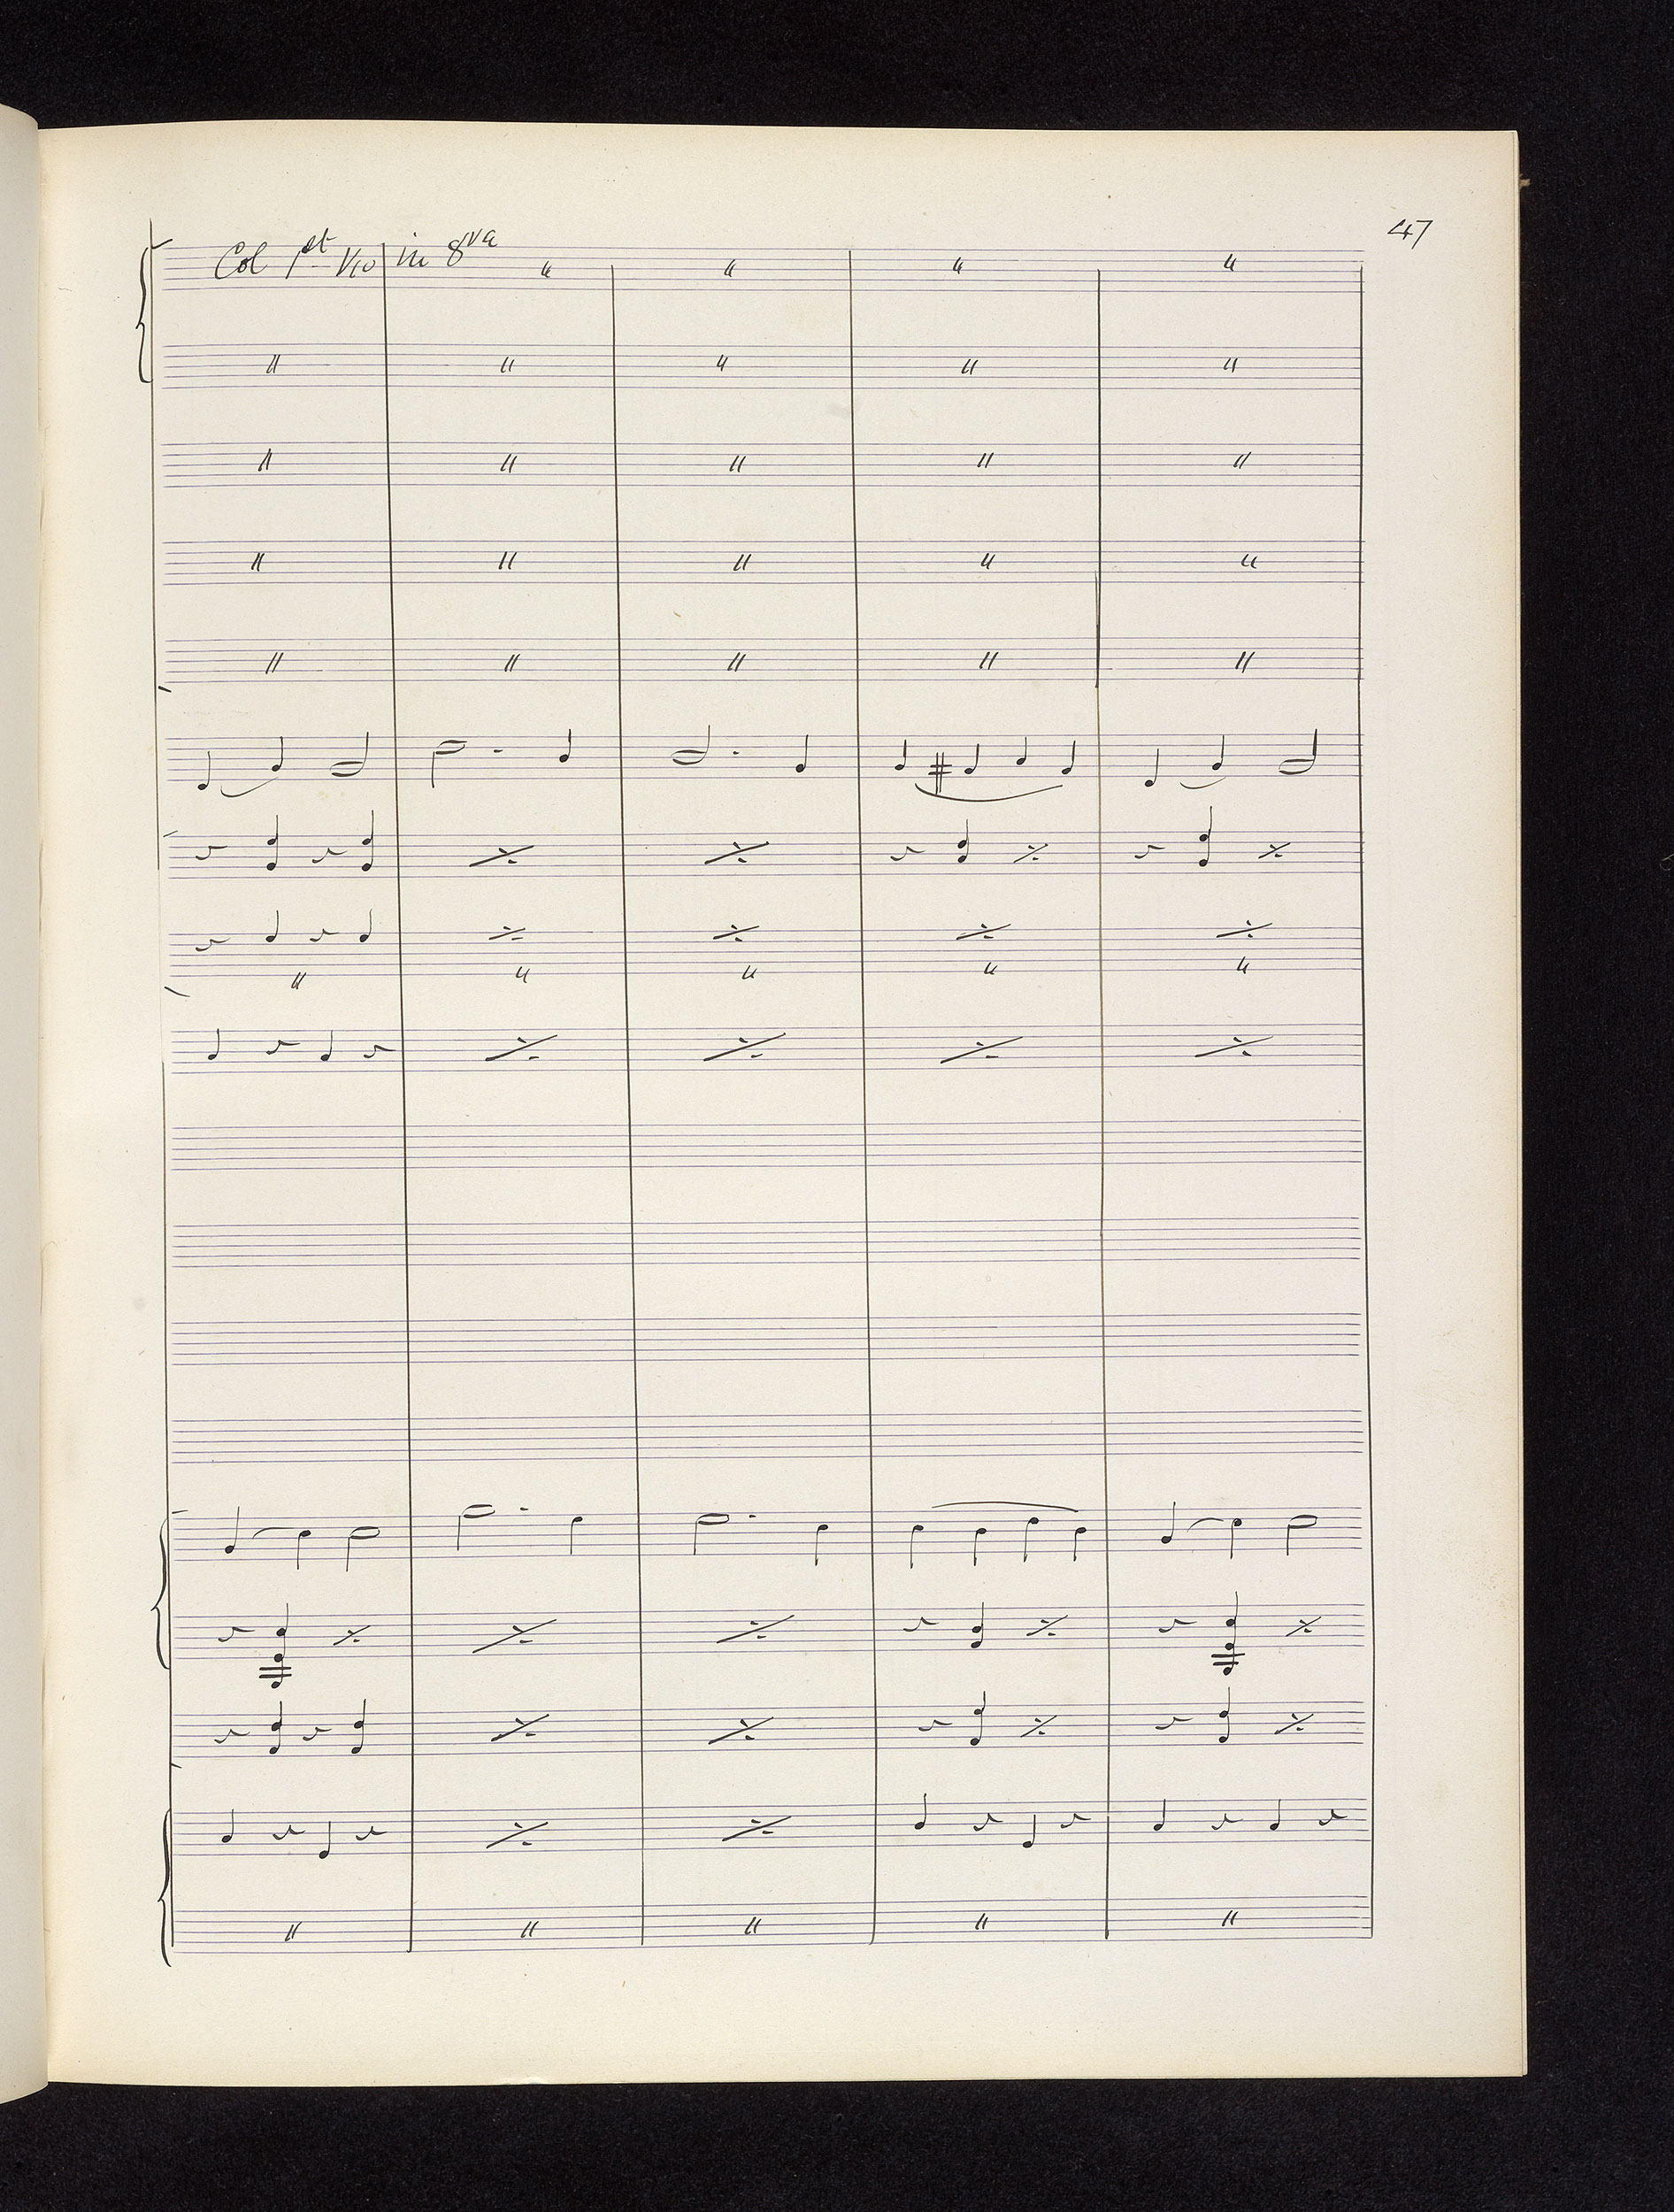 47
Col 1st Vio in 8va